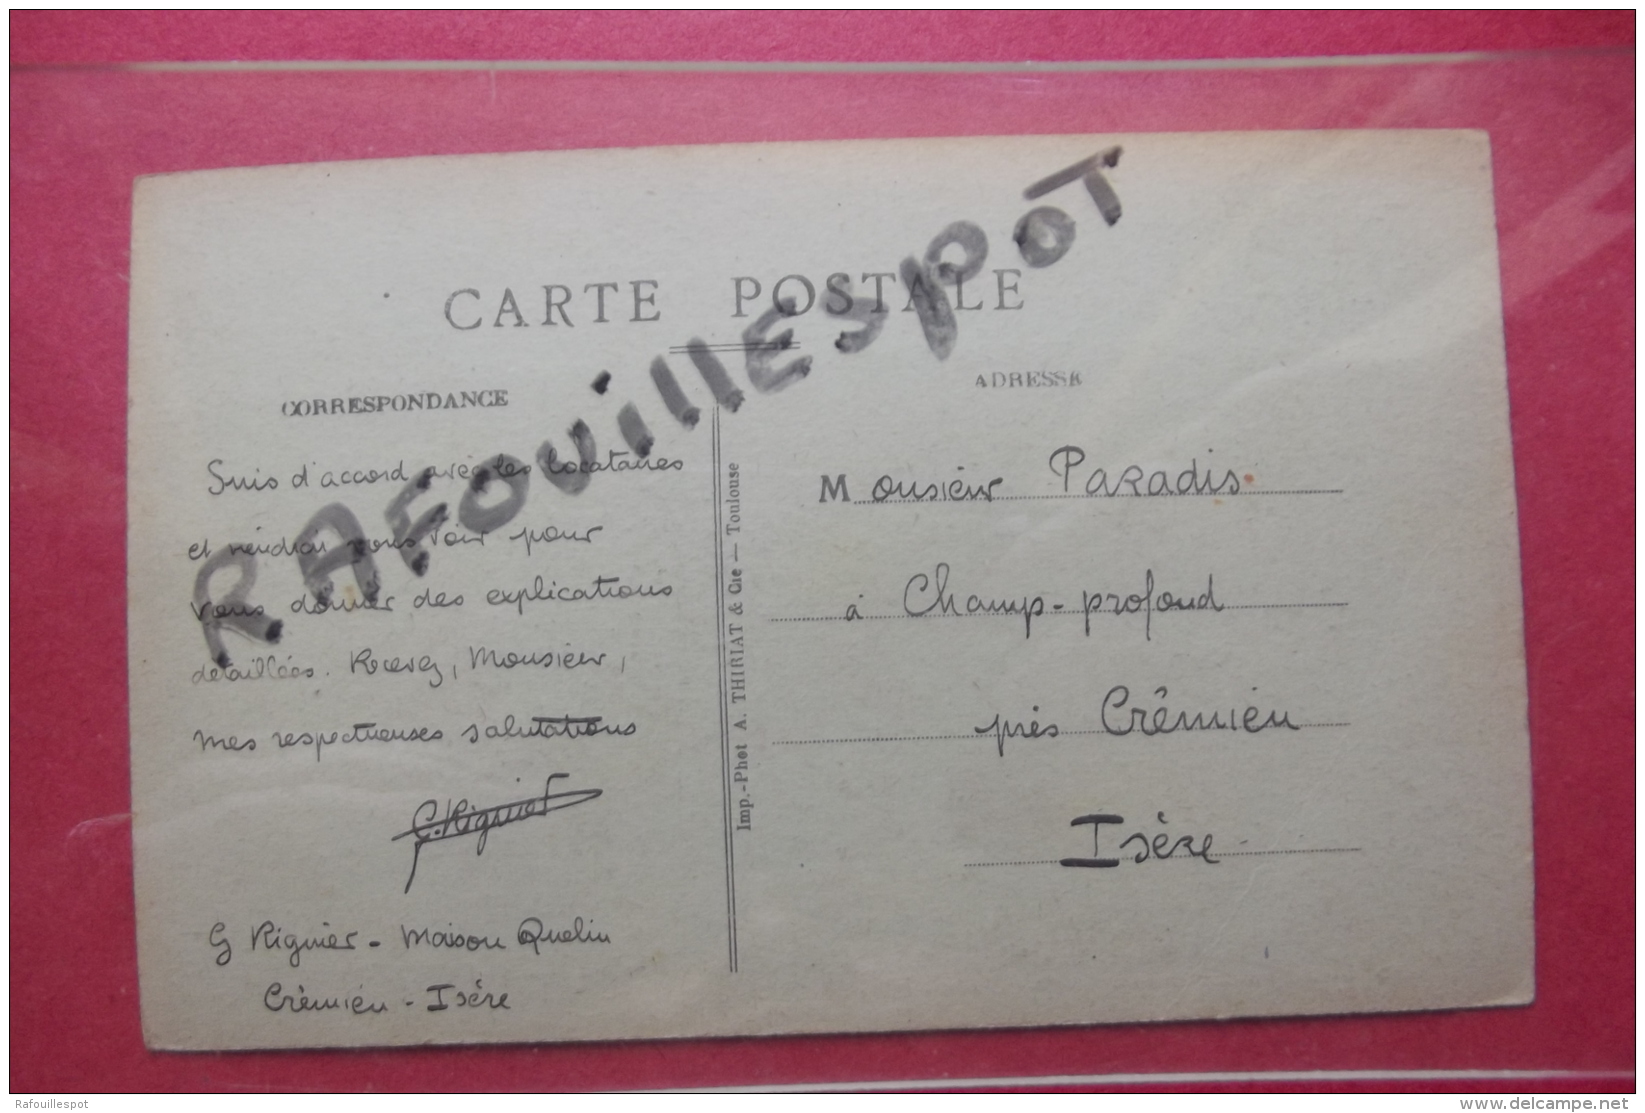 RAFOUILLESPOT
CARTE POSTALE
CORRESPONDANCE
Suis d'accord avec les locataires
et viendrai vous voir pour
vous donner des explications
détaillées. Recevez, Monsieur,
mes respectueuses salutations
G. Rignier
G Rignier - Maison Quelin
Crémieu - Isère
Imp.-Phot A. THIRIAT & Cie — Toulouse
ADRESSE
Monsieur Paradis
à Champ-profond
près Crêmieu
Isère
Rafouillespot
www.delcampe.net